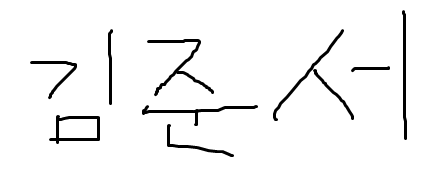 김준서